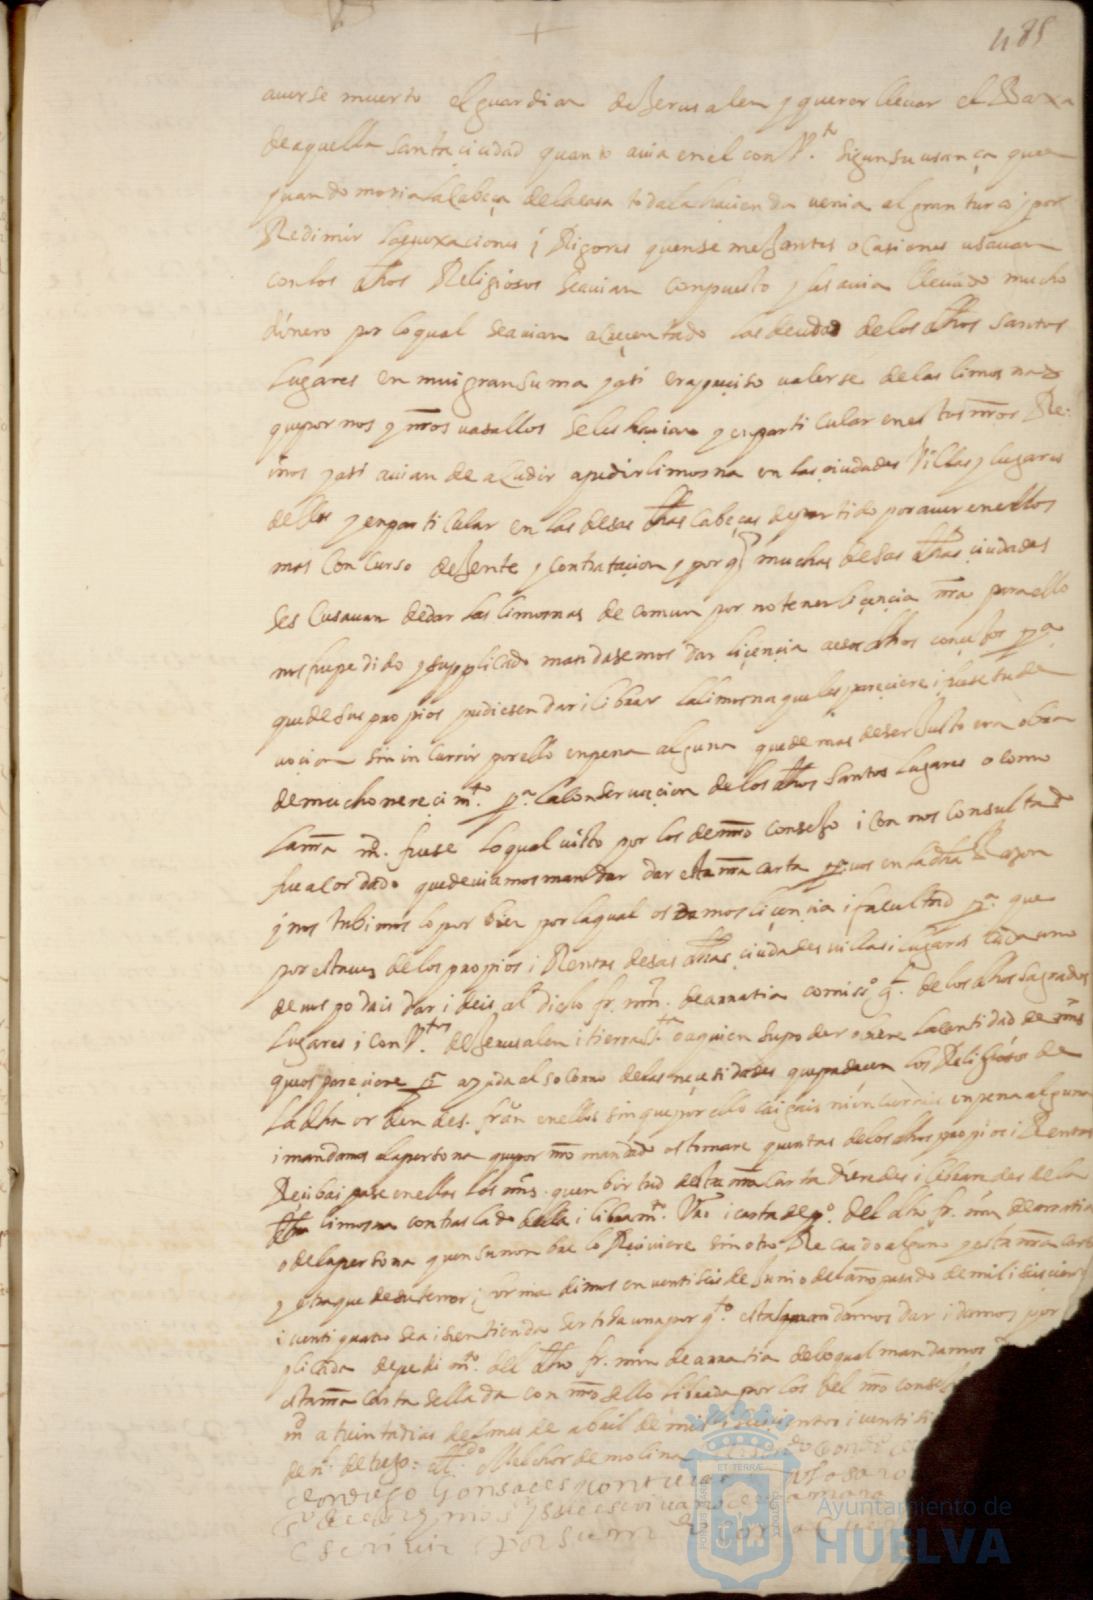 485
auerse muerto el guardian de Jerusalen y querer llevar el Baxa
de aquella santa ciudad quanto auia en el conv.to sigun su usança que
quando moria la cabeça de la casa toda la hacienda venia al gran turco y por
Redimir las vexaciones i Rigores quen semejantes ocasiones usauan
con los dhos Religiosos se auian conpuesto y les auia llevado mucho
dinero por lo qual se auian acrecentado las deudas de los dhos santos
lugares en mui gran suma y asi era preciso valerse de las limosnas
que por nos y nros vasallos se les hacian y en particular en estos nros Re-
inos y asi auian de acudir a pedir limosna en las ciudades Villas y lugares
dellos y en particular en las desas dhas cabeças de partido por auer en ellos
mas concurso de Jente y contratacion y por q muchas desas dhas ciudades
se escusauan de dar las limosnas de comun por no tener licencia nra para ello
nos fue pedido y supplicado mandasemos dar licencia a esos dhos concejos p.a
que de sus propios pudiesen dar i librar la limosna que les pareciere i fuese su de
uocion sin incurrir por ello en pena alguna que demas de ser Justo era obra
de mucho merecim.to p.a la conservacion de los dhos santos lugares o como
la nra md. fuese lo qual visto por los del nro consejo i con nos consultado
fue acordado que deviamos mandar dar esta nra carta p.a vos en la dha Razon
y nos tubimoslo por bien por la qual os damos licencia i facultad p.a que
por esta vez de los propios i Rentas desas dhas ciudades villas i lugares cada uno
de vos podais dar i deis al dicho fr. min. de anatia comis.o g.l de los dhos sagrados
lugares i conv.tos de Jerusalen i tierra s.ta o a quien su poder oviere la cantidad de mrs
que os pareciere p.a ayuda al socorro de las necesidades que padecen los Religiosos de
la dha orden de s. fran en ellos sin que por ello caigais ni incurrais en pena alguna
i mandamos a la persona que por nro mandado os tomare quentas de los dhos propios i Rentas
Reciba i pase en ellas los mrs. quen birtud desta nra carta dieredes i libraredes de la
dha limosna con traslado della i libram.to Vro i carta de p.o del dho fr. min de anatia
o de la persona quen su nonbre lo Reciviere sin otro Recaudo alguno y esta nra carta
y otra que de su tenor i forma dimos en ventiseis de Junio del año pasado de mil i seiscien
i venti quatro sea i se entienda ser toda una por q.to esta mandamos dar i damos por
plicada de pedim.to del dho fr. min de anatia de lo qual mandamos
esta nra carta sellada con nro sello librada por los del nro consejo
md a treinta dias del mes de abril de mil i seiscientos i venti
de n.l de tejo: el l.do Melchor de molina
don diego Gonsales
escrivir por su m.do